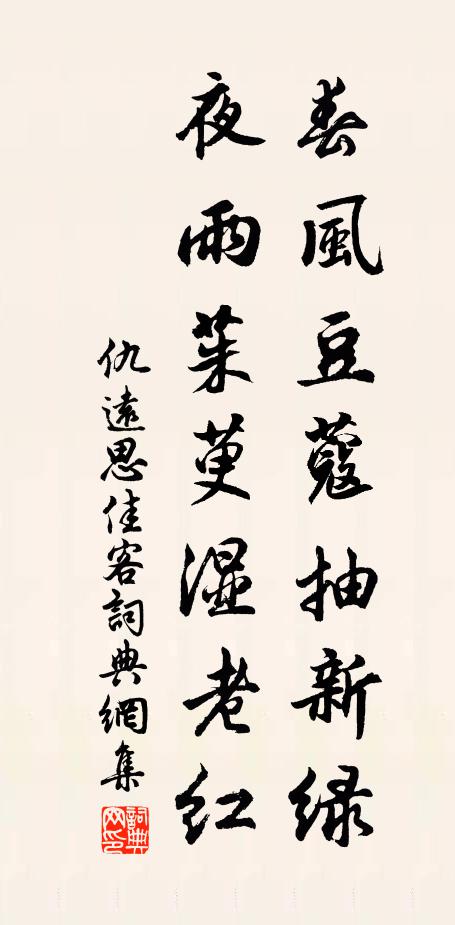 春風豆蔻抽新緑
夜雨茱萸濕老紅
仇遠思佳客詞典網集
詞典網印